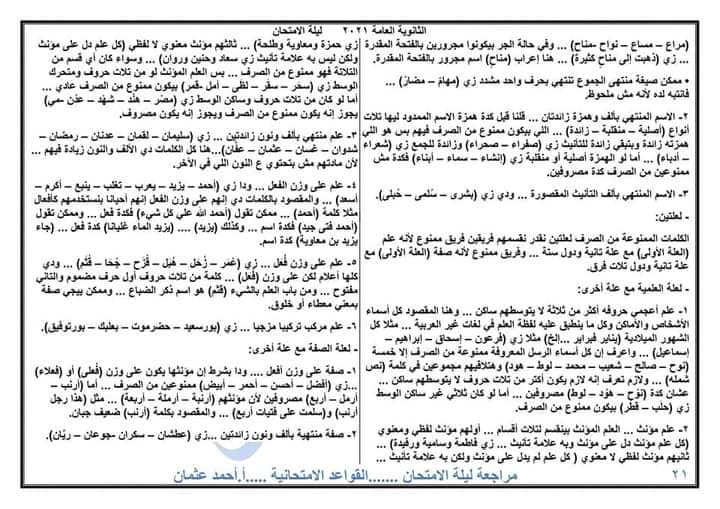 الثانوية العامة ٢٠٢١ ليلة الامتحان
(مراع – مساع – نواح -مناح) ... وفي حالة الجر بيكونوا مجرورين بالفتحة المقدرة
... زي (ذهبت إلى مناحِ كثيرة) ... هنا إعراب (مناحِ) اسم مجرور بالفتحة المقدرة.
• ممكن صيغة منتهى الجموع تنتهي بحرف واحد مشدد زي (مهامّ – مضارّ) ...
فانتبه لده لأنه مش ملحوظ.
٢- الاسم المنتهي بألف وهمزة زائدتان ... قلنا قبل كدة همزة الاسم الممدود ليها تلات
أنواع (أصلية – منقلبة – زائدة) ... اللي بيكون ممنوع من الصرف فيهم بس هو اللي
همزته زائدة وبتبقى زائدة للتأنيث زي (صفراء – صحراء) وزائدة للجمع زي (شعراء
– أدباء) ... أما لو الهمزة أصلية أو منقلبة زي (إنشاء – سماء – أبناء) فكدة مش
ممنوعين من الصرف كدة مصروفين.
٣- الاسم المنتهي بألف التأنيث المقصورة ... ودي زي (بشرى – سُلمى – حُبلى).
- لعلتين:
الكلمات الممنوعة من الصرف لعلتين نقدر نقسمهم فريقين فريق ممنوع لأنه علم
(العلة الأولى) مع علة تانية ودول ستة ... وفريق ممنوع لأنه صفة (العلة الأولى) مع
علة تانية ودول تلات فرق.
- لعلة العلمية مع علة أخرى:
١- علم أعجمي حروفه أكثر من ثلاثة لا يتوسطهم ساكن ... وهنا المقصود كل أسماء
الأشخاص والأماكن وكل ما ينطبق عليه لفظة العلم في لغات غير العربية ... مثلا كل
الشهور الميلادية (يناير فبراير ...إلخ) مثلا زي (فرعون – إسحاق – إبراهيم –
إسماعيل) ... واعرف إن كل أسماء الرسل المعروفة ممنوعة من الصرف إلا خمسة
(نوح – صالح – شعيب – محمد – لوط – هود) وهتلاقيهم مجموعين في كلمة (نص
شمله) ... ولازم تعرف إنه لازم يكون أكتر من تلات حروف لا يتوسطهم ساكن ...
عشان كدة (نُوْح – هُوْد – لوط) مصروفين ... أما لو كان ثلاثي غير ساكن الوسط
زي (حلب – قطر) بيكون ممنوع من الصرف.
٢- علم مؤنث ... العلم المؤنث بينقسم لتلات أقسام ... أولهم مؤنث لفظي ومعنوي
(كل علم دل على مؤنث وبه علامة تأنيث ... زي فاطمة وسامية ورفيدة) ...
ثانيهم مؤنث لفظي لا معنوي ( كل علم لم يدل على مؤنث ولكن به علامة تأنيث ...
زي حمزة ومعاوية وطلحة) ... ثالثهم مؤنث معنوي لا لفظي (كل علم دل على مؤنث
ولكن ليس به علامة تأنيث زي سعاد وحنين وروان) ... وسواء كان أي قسم من
التلاتة فهو ممنوع من الصرف ... بس العلم المؤنث لو من تلات حروف ومتحرك
الوسط زي (سحَر – سقَر – لظَى – أمَل -قمَر) بيكون ممنوع من الصرف عادي ...
أما لو كان من تلات حروف وساكن الوسط زي (مصْر – هنْد – شهْد – عدْن -مي)
يجوز إنه يكون ممنوع من الصرف ويجوز إنه يكون مصروف.
٣- علم منتهي بألف ونون زائدتين ... زي (سليمان – لقمان – عدنان – رمضان –
شدوان – غسان – عثمان – عفان)...هنا كل الكلمات دي الألف والنون زيادة فيهم ...
لأن مادتهم مش بتحتوي ع النون اللي في الآخر.
٤- علم على وزن الفعل ... ودا زي (أحمد – يزيد – يعرب – تغلب – ينبع – أكرم –
أسعد) ... والمقصود بالكلمات دي إنهم على وزن الفعل إنهم أحيانا بنستخدمهم كأفعال
مثلا كلمة (أحمد) ... ممكن تقول (أحمد الله على كل شيء) فكدة فعل ... وممكن تقول
(أحمد فتى جيد) فكدة اسم ... وكذلك (يزيد) .... (يزيد الماء غليانا) كدة فعل ... (جاء
يزيد بن معاوية) كدة اسم.
٥- علم على وزن (فُعَل) ... زي (عُمَر – زُحَل – هُبَل – قُزَح – جُحَا – قُثَم) ... ودي
كلها أعلام لكن على وزن (فُعَل) ... كلمة من تلات حروف أول حرف مضموم والتاني
مفتوح ... ومن باب العلم بالشيء (قثم) هو اسم ذكر الضباع ... وممكن ييجي صفة
بمعني معطاء أو خلوق.
٦- علم مركب تركيبا مزجيا ... زي (بورسعيد – حضرموت – بعلبك – بورتوفيق).
- لعلة الصفة مع علة أخرى:
١- صفة على وزن أفعل .... ودا بشرط إن مؤنثها يكون على وزن (فُعلى) أو (فعلاء)
...زي (أفضل – أحسن – أحمر – أبيض) ممنوعين من الصرف ... أما (أرنب –
أرمل – أربع) مصروفين لأن مؤنثهم (أرنبة – أرملة – أربعة) ... مثل (هذا رجل
أرنب) و(سلمت على فتيات أربع) ... والمقصود بكلمة (أرنب) ضعيف جبان.
٢- صفة منتهية بألف ونون زائدتين ...زي (عطشان – سكران -جوعان – ريّان).
٢١ مراجعة ليلة الامتحان .......القواعد الامتحانية .....أ.أحمد عثمان